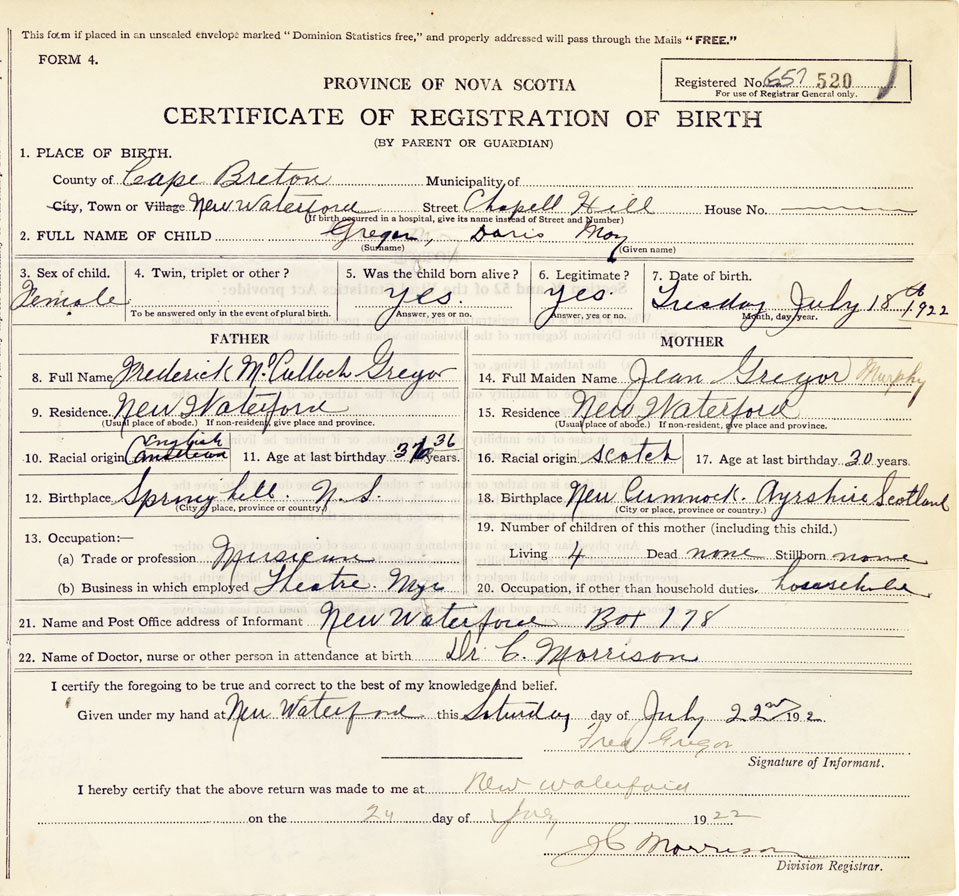 This form if placed in an unsealed envelope marked "Dominion Statistics free," and properly addressed will pass through the Mails "FREE."
FORM 4.
Registered No. 657 520
For use of Registrar General only.
PROVINCE OF NOVA SCOTIA
CERTIFICATE OF REGISTRATION OF BIRTH
(BY PARENT OR GUARDIAN)
1. PLACE OF BIRTH.
County of Cape Breton Municipality of
City, Town or Village New Waterford Street Chapell Hill House No.
(If birth occurred in a hospital, give its name instead of Street and Number)
2. FULL NAME OF CHILD Gregor, Doris May
(Surname) (Given name)
3. Sex of child. Female
4. Twin, triplet or other?
To be answered only in the event of plural birth.
5. Was the child born alive? yes.
Answer, yes or no.
6. Legitimate? yes.
Answer, yes or no.
7. Date of birth.
Tuesday July 18th 1922
Month, day, year.
FATHER
8. Full Name Frederick McCulloch Gregor
9. Residence. New Waterford
(Usual place of abode.) If non-resident, give place and province.
10. Racial origin English
11. Age at last birthday 36 years.
12. Birthplace Spring hill. N.S.
(City or place, province or country.)
13. Occupation:—
(a) Trade or profession Musician
(b) Business in which employed Theatre Mgr
MOTHER
14. Full Maiden Name Jean Gregor Murphy
15. Residence New Waterford
(Usual place of abode.) If non-resident, give place and province.
16. Racial origin Scotch
17. Age at last birthday 30 years.
18. Birthplace New Cumnock. Ayrshire Scotland
(City or place, province or country.)
19. Number of children of this mother (including this child.)
Living 4 Dead none Stillborn none
20. Occupation, if other than household duties.
21. Name and Post Office address of Informant New Waterford Box 178
22. Name of Doctor, nurse or other person in attendance at birth Dr C. Morrison
I certify the foregoing to be true and correct to the best of my knowledge and belief.
Given under my hand at New Waterford this Saturday day of July 22nd 192
Fred Gregor
Signature of Informant.
I hereby certify that the above return was made to me at New Waterford
on the 24 day of July 1922
J C Morrison
Division Registrar.